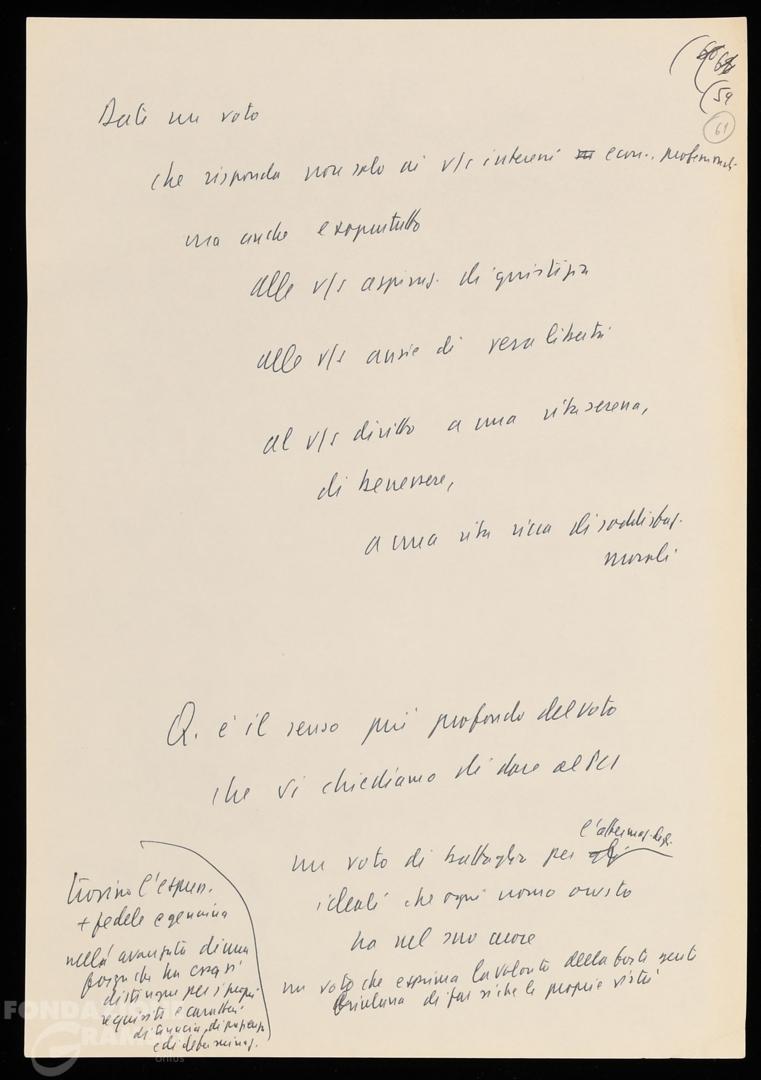 (60 61
(59
61
Date un voto
che risponda non solo ai v/s interessi econ., professionali
ma anche e soprattutto
alle v/s aspiraz. di giustizia
alle v/s ansie di vera libertà
al v/s diritto a una vita serena,
di benessere,
a una vita ricca di soddisfaz.
morali
Q. è il senso più profondo del voto
che vi chiediamo di dare al PCI
un voto di battaglia per l'affermaz. degli
ideali che ogni uomo onesto
ha nel suo cuore
un voto che esprima la volontà della forte gente
friulana di far sì che le proprie virtù
trovino l'espress.
+ fedele e genuina
nell'avanzata di una
forza che ha essa si
distingue per i propri
requisiti e caratteri
di tenacia, di pazienza
e di determinaz.
FONDAZIONE
GRAMSCI
onlus